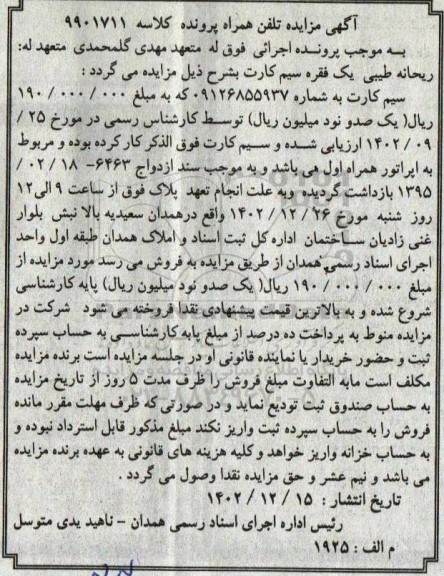 آگهی مزایده تلفن همراه پرونده کلاسه ۹۹۰۱۷۱۱
به موجب پرونده اجرائی فوق له متعهد مهدی گلمحمدی متعهد له:
ریحانه طیبی یک فقره سیم کارت بشرح ذیل مزایده می گردد :
سیم کارت به شماره ۰۹۱۲۶۸۵۵۹۳۷ که به مبلغ ۰۰۰/ ۰۰۰/ ۱۹۰
ریال( یک صدو نود میلیون ریال) توسط کارشناس رسمی در مورخ ۲۵ /
۰۹ / ۱۴۰۲ ارزیابی شده و سیم کارت فوق الذکر کار کرده بوده و مربوط
به اپراتور همراه اول می باشد و به موجب سند ازدواج ۶۴۶۳- ۱۸ / ۰۲ /
۱۳۹۵ بازداشت گردیده وبه علت انجام تعهد پلاک فوق از ساعت ۹ الی۱۲
روز شنبه مورخ ۲۶ / ۱۲ / ۱۴۰۲ واقع درهمدان سعیدیه بالا نبش بلوار
غنی زادیان ساختمان اداره کل ثبت اسناد و املاک همدان طبقه اول واحد
اجرای اسناد رسمی همدان از طریق مزایده به فروش می رسد مورد مزایده از
مبلغ ۰۰۰/ ۰۰۰/ ۱۹۰ ریال( یک صدو نود میلیون ریال) پایه کارشناسی
شروع شده و به بالاترین قیمت پیشنهادی نقدا فروخته می شود شرکت در
مزایده منوط به پرداخت ده درصد از مبلغ پایه کارشناسی به حساب سپرده
ثبت و حضور خریدار یا نماینده قانونی او در جلسه مزایده است برنده مزایده
مکلف است مابه التفاوت مبلغ فروش را ظرف مدت ۵ روز از تاریخ مزایده
به حساب صندوق ثبت تودیع نماید و در صورتی که ظرف مهلت مقرر مانده
فروش را به حساب سپرده ثبت واریز نکند مبلغ مذکور قابل استرداد نبوده و
به حساب خزانه واریز خواهد و کلیه هزینه های قانونی به عهده برنده مزایده
می باشد و نیم عشر و حق مزایده نقدا وصول می گردد .
تاریخ انتشار : ۱۵ / ۱۲ / ۱۴۰۲
رئیس اداره اجرای اسناد رسمی همدان - ناهید یدی متوسل
م الف : ۱۹۲۵